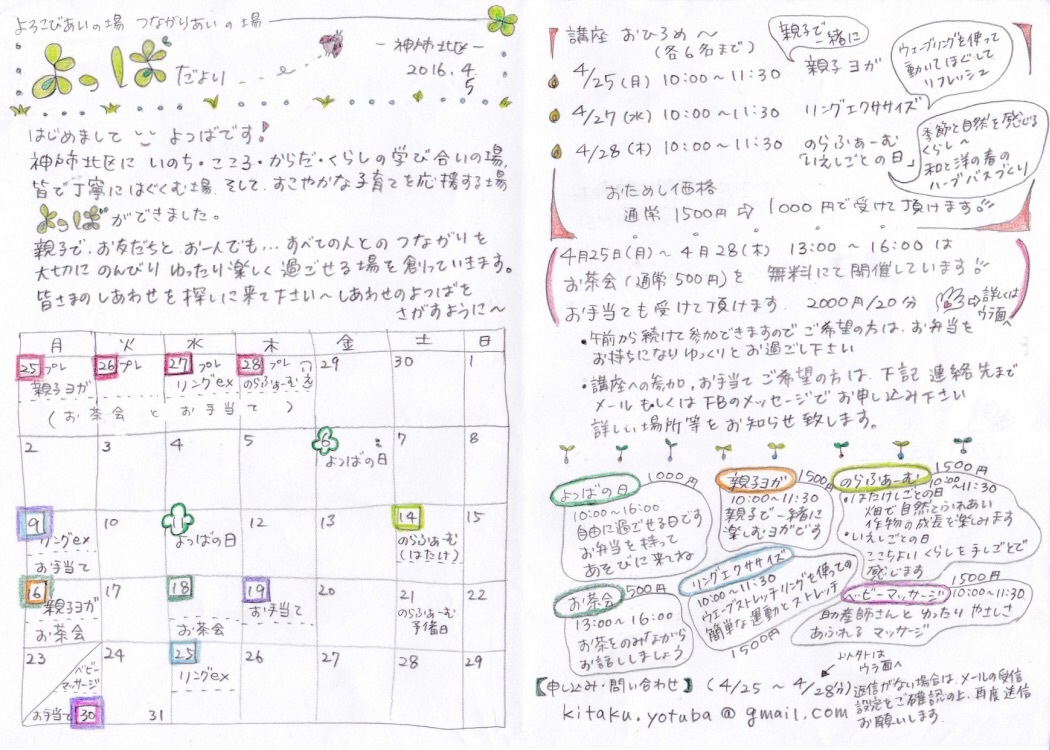 よろこびあいの場 つながりあいの場
よつばだより
－神戸市北区－
2016.4
5
はじめまして よつばです!
神戸市北区に いのち・こころ・からだ・くらしの学び合いの場、
皆で丁寧にはぐくむ場 そして、すこやかな子育てを応援する場
よつばができました。
親子で、お友だちと お一人でも… すべての人とのつながりを
大切に のんびり ゆったり楽しく 過ごせる場を創っていきます。
皆さまのしあわせを探しに来て下さい～しあわせのよつばを
さがすように～
月 火 水 木 金 土 日
25 プレ 26 プレ 27 プレ 28 プレ 29 30 1
親子ヨガ リングex のらふぁーむ
(お茶会とお手当て)
2 3 4 5 6 7 8
よつばの日
9 10 11 12 13 14 15
リングex よつばの日 のらふぁーむ
(はたけ)
お手当て
16 17 18 19 20 21 22
親子ヨガ お手当て のらふぁーむ
予備日
お茶会 お茶会
23 24 25 26 27 28 29
ベビー
マッサージ リングex
お手当て 30 31
講座 おひろめ～
(各6名まで)
4/25(月) 10:00～11:30 親子ヨガ
親子で
一緒に
4/27(水) 10:00～11:30 リングエクササイズ
ウェーブリングを使って
動いてほぐして
リフレッシュ
4/28(木) 10:00～11:30 のらふぁーむ
「いえしごとの日」
季節と自然を感じる
くらし～
和と洋の春の
ハーブバスづくり
おためし価格
通常 1500円⇨1000円で受けて頂けます
4月25日(月)～4月28(木) 13:00～16:00は
お茶会(通常500円)を 無料にて開催しています
お手当ても受けて頂けます. 2000円/20分
⇨詳しくは
ウラ面へ
・午前から続けて参加できますので ご希望の方は、お弁当を
お持ちになり ゆっくりとお過ごし下さい
・講座への参加、お手当て ご希望の方は、下記 連絡先まで
メール もしくは FBのメッセージで お申し込み下さい
詳しい場所等をお知らせ致します。
よつばの日 1000円
10:00～16:00
自由に過ごせる日です
お弁当を持って
あそびに来てね
親子ヨガ 1500円
10:00～11:30
親子で一緒に
楽しむヨガです
のらふぁーむ 1500円
10:00～11:30
・はたけしごとの日
畑で自然とふれあい
作物の成長を楽しみます
・いえしごとの日
ここちよいくらしを手しごとで
感じます
お茶会 500円
13:00～16:00
お茶をのみながら
お話ししましょう
リングエクササイズ
10:00～11:30
ウェーブストレッチリングを使っての
簡単な運動とストレッチ
1500円
ベビーマッサージ 1500円
10:00～11:30
助産師さんと ゆったり やさしさ
あふれる マッサージ
ウラ面へ
【申し込み・問い合わせ】 (4/25～4/28分)
kitaku.yotuba@gmail.com
返信がない場合は、メールの受信
設定をご確認の上、再度送信
お願いします.